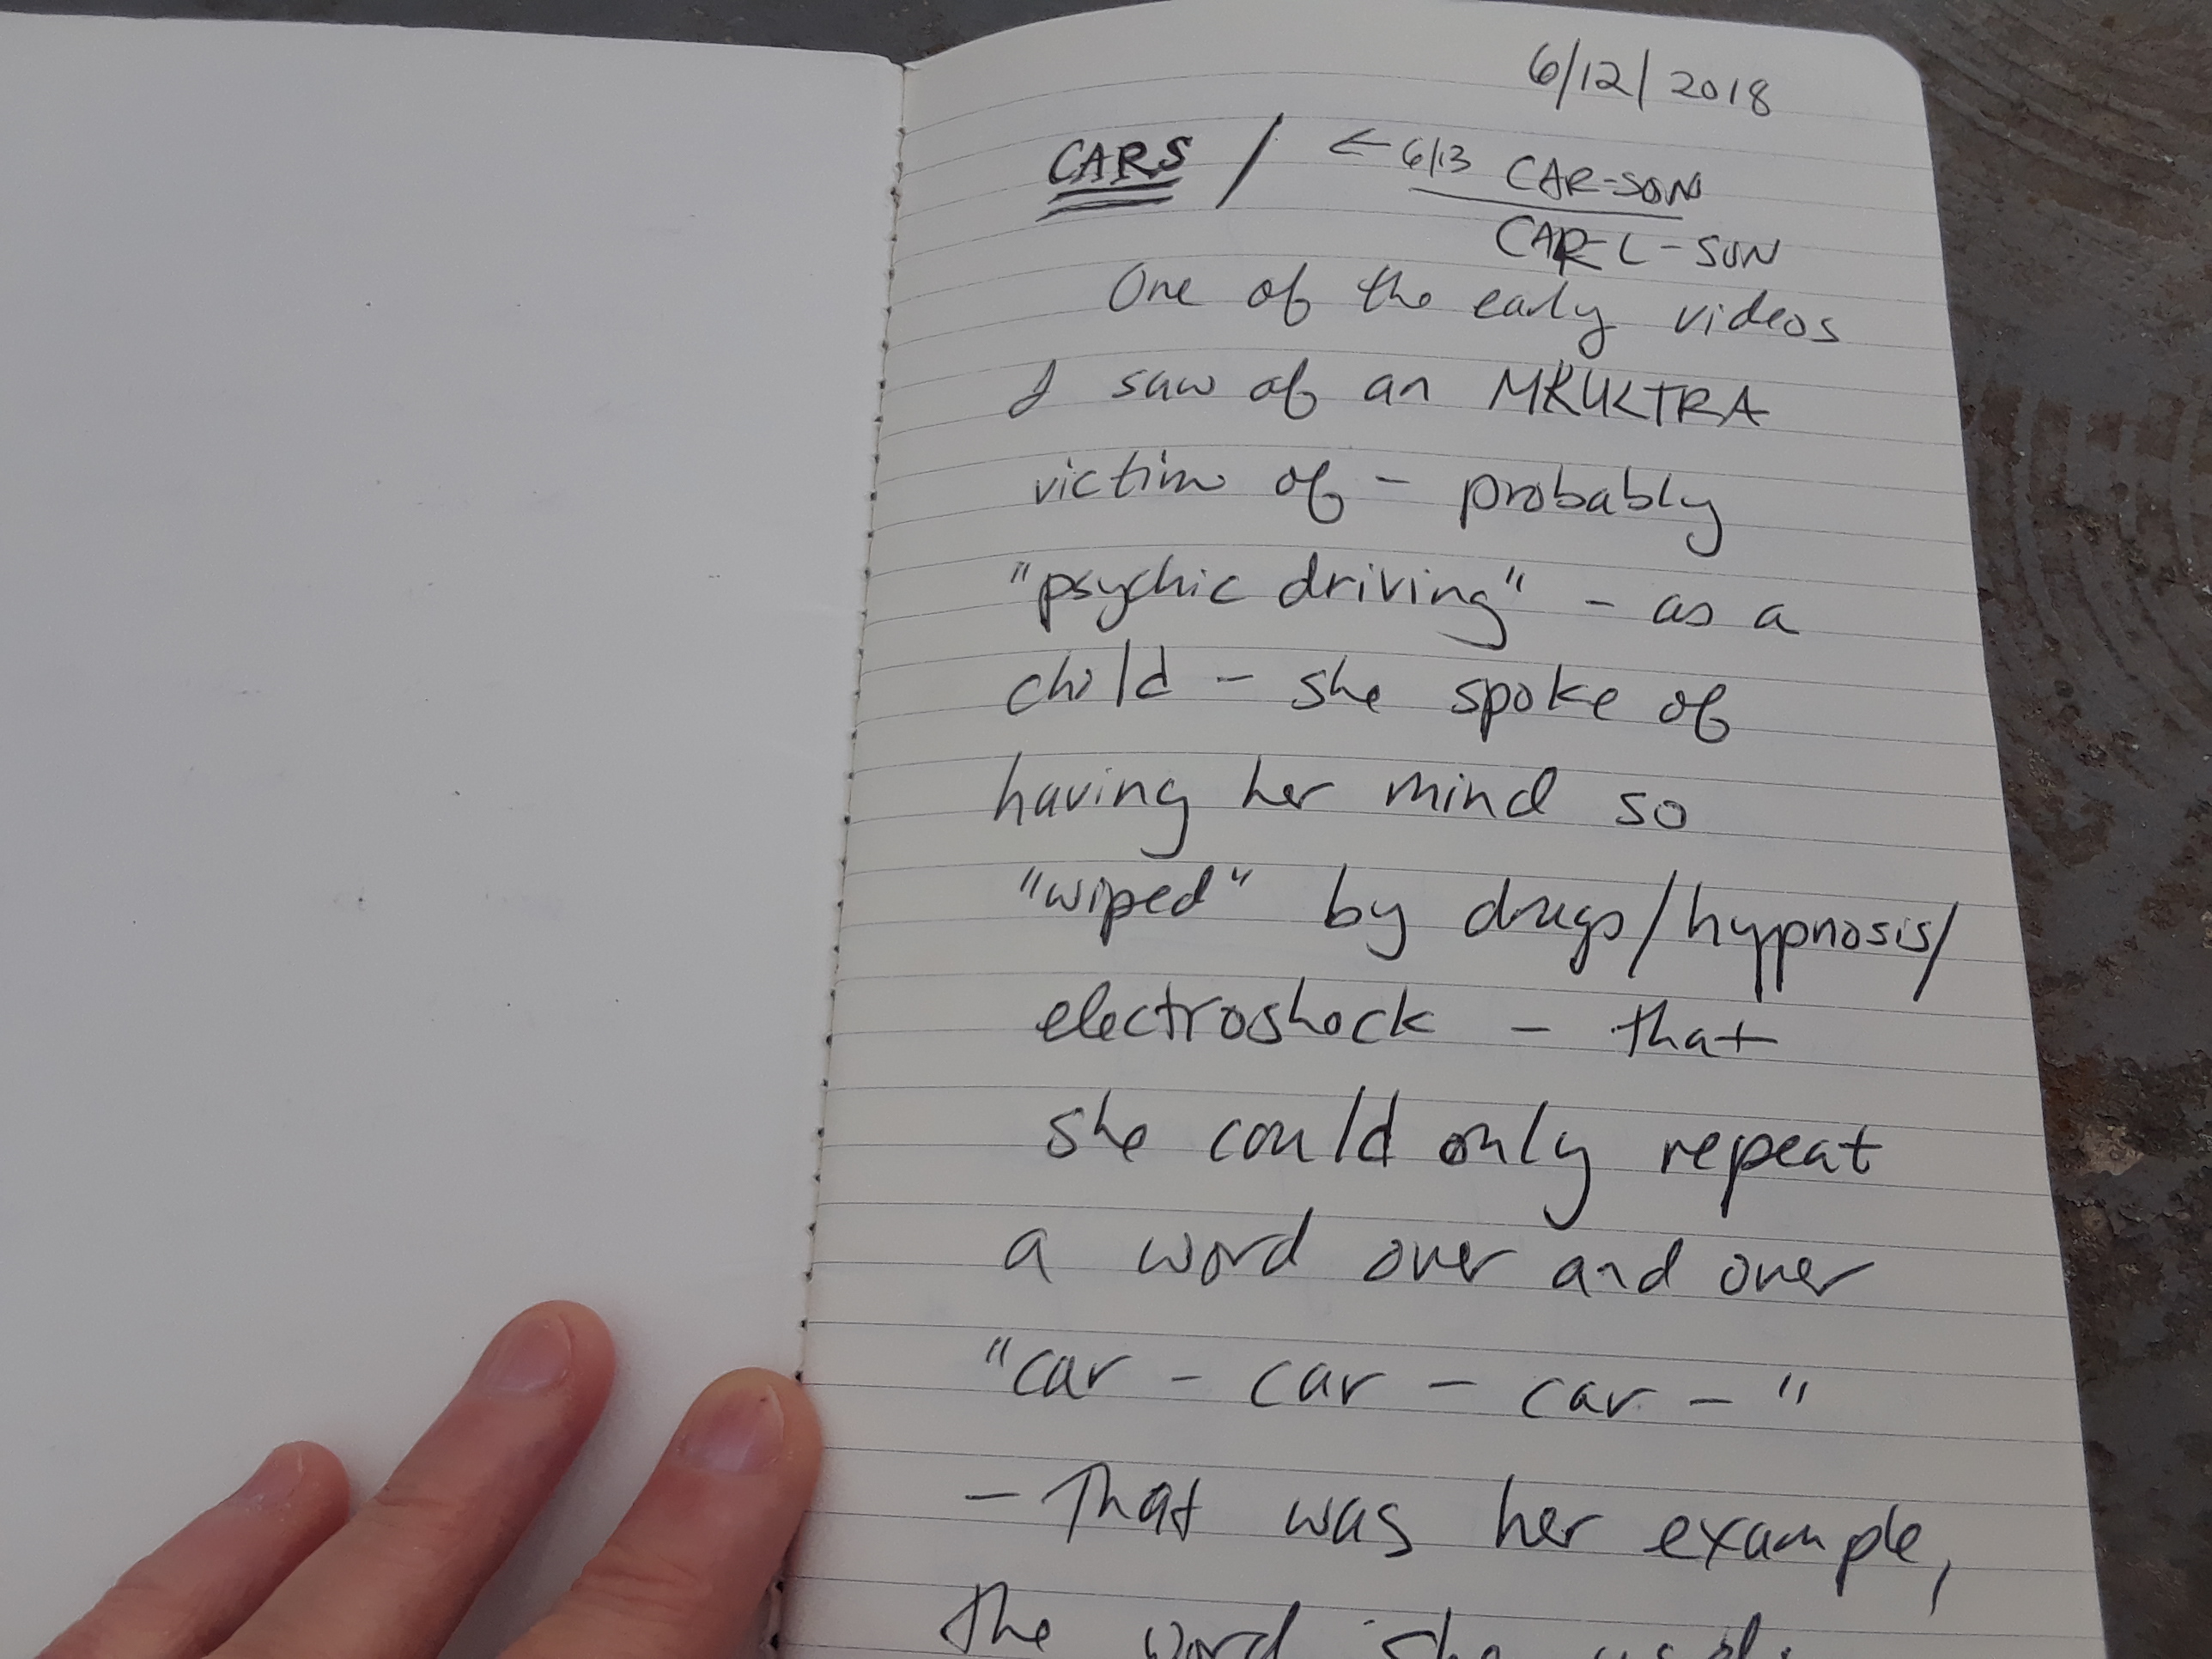 6/12/2018
CARS / ← 6/13 CAR-SON
CAR-L-SON
One of the early videos
I saw of an MKULTRA
victim of - probably
"psychic driving" - as a
child - she spoke of
having her mind so
"wiped" by drugs/hypnosis/
electroshock - that
she could only repeat
a word over and over
"car - car - car - "
- That was her example,
the word she